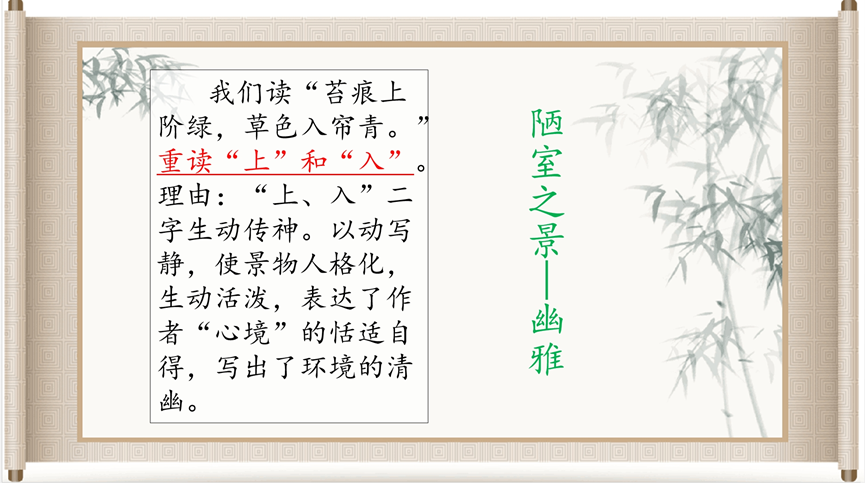 我们读“苔痕上
阶绿，草色入帘青。”
重读“上”和“入”。
理由：“上、入”二
字生动传神。以动写
静，使景物人格化，
生动活泼，表达了作
者“心境”的恬适自
得，写出了环境的清
幽。
陋室之景—幽雅